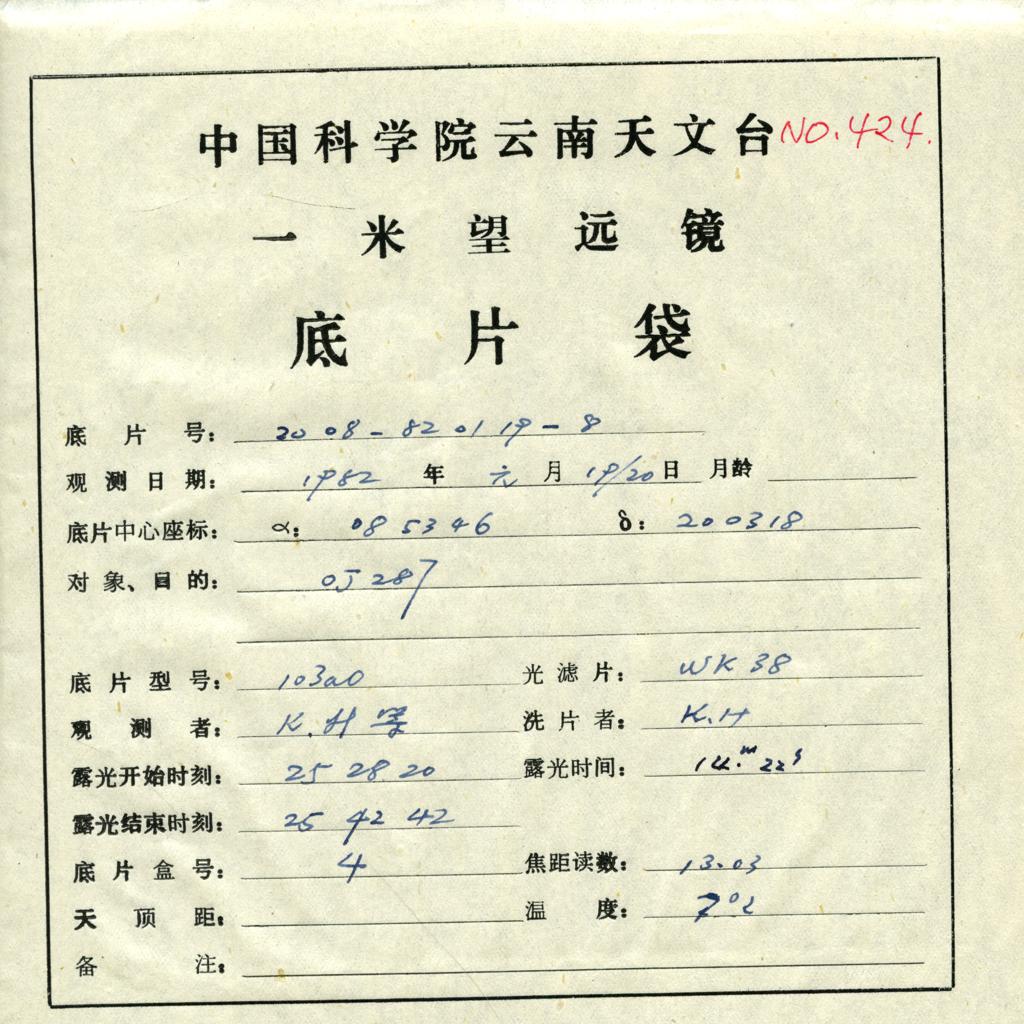 中国科学院云南天文台 NO.424.
一米望远镜
底片袋
底片号： 2008-820119-8
观测日期： 1982 年 元 月 19/20 日 月龄
底片中心座标： α： 085346 δ： 200318
对象、目的： OJ 287
底片型号： 103aO 光滤片： WK 38
观测者： K.H 洗片者： K.H
露光开始时刻： 25 28 20 露光时间： 14.ᵐ 22ˢ
露光结束时刻： 25 42 42
底片盒号： 4 焦距读数： 13.03
天顶距： 温度： 7°2
备注：